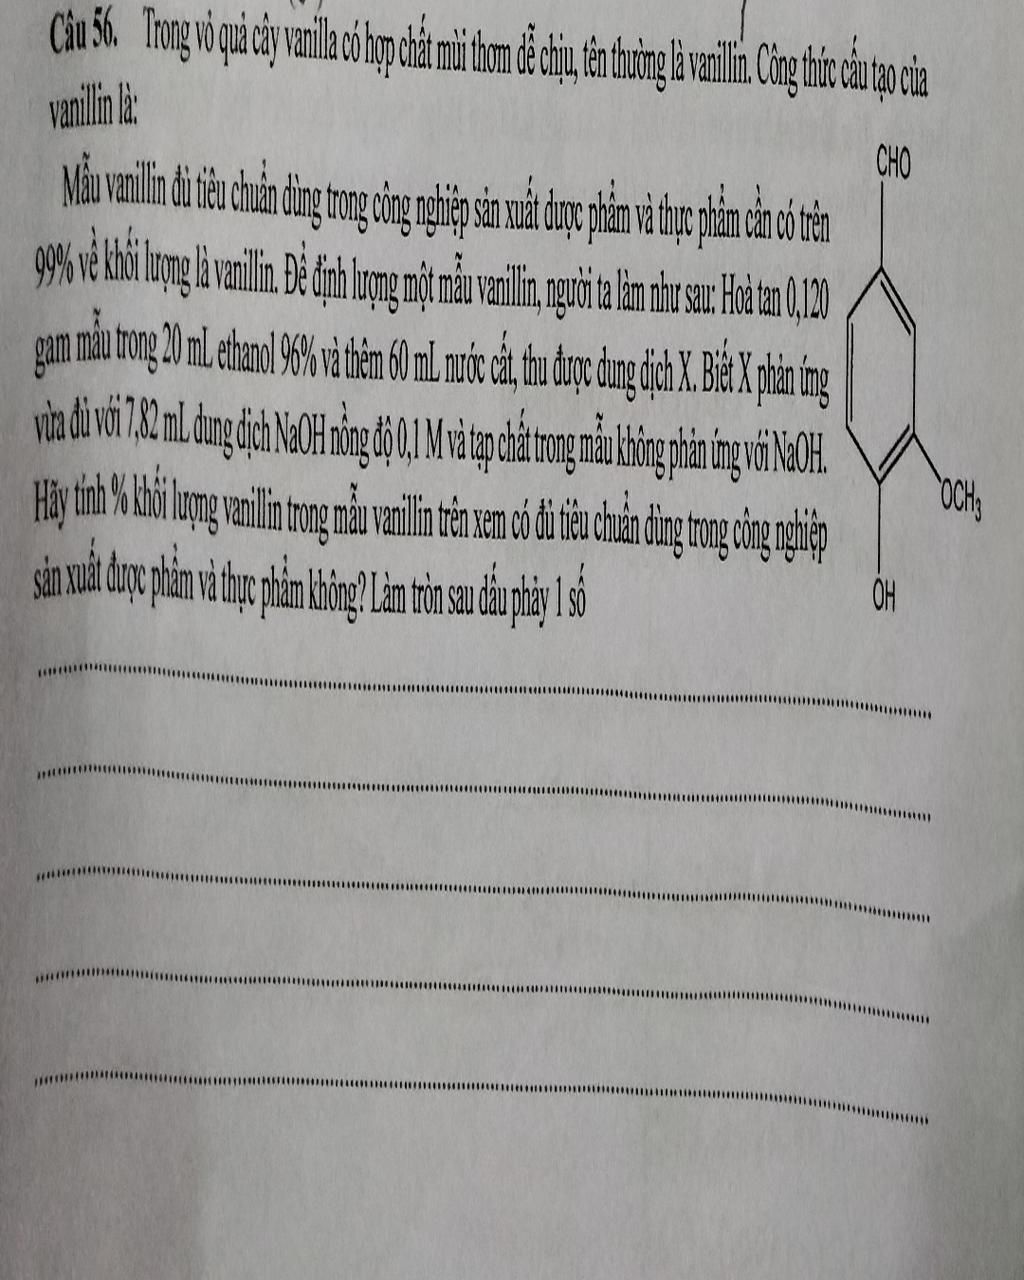 Câu 56. Trong vỏ quả cây vanilla có hợp chất mùi thơm dễ chịu, tên thường là vanillin. Công thức cấu tạo của
vanillin là:
Mẫu vanillin đủ tiêu chuẩn dùng trong công nghiệp sản xuất dược phẩm và thực phẩm cần có trên
99% về khối lượng là vanillin. Để định lượng một mẫu vanillin, người ta làm như sau: Hoà tan 0,120
gam mẫu trong 20 mL ethanol 96% và thêm 60 mL nước cất, thu được dung dịch X. Biết X phản ứng
vừa đủ với 7,82 mL dung dịch NaOH nồng độ 0,1 M và tạp chất trong mẫu không phản ứng với NaOH.
Hãy tính % khối lượng vanillin trong mẫu vanillin trên xem có đủ tiêu chuẩn dùng trong công nghiệp
sản xuất được phẩm và thực phẩm không? Làm tròn sau dấu phảy 1 số
CHO
OCH3
OH